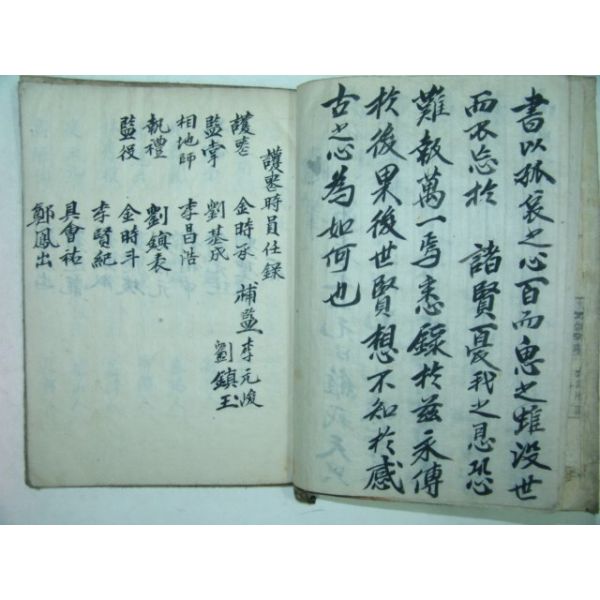 書以孤哀之心百而思之雖没世
而不忘於 諸賢憂我之恩恐
難報萬一焉悉錄於玆永傳
於後果後世賢想不知於感
古之心為如何也
護喪時員任錄
護喪 金時承 補監 李元峻
劉鎮玉
監掌 劉基成
相地師 李昌浩
執禮 劉鎮
監役 金時斗
李賢紀
具會祐
鄭鳳出